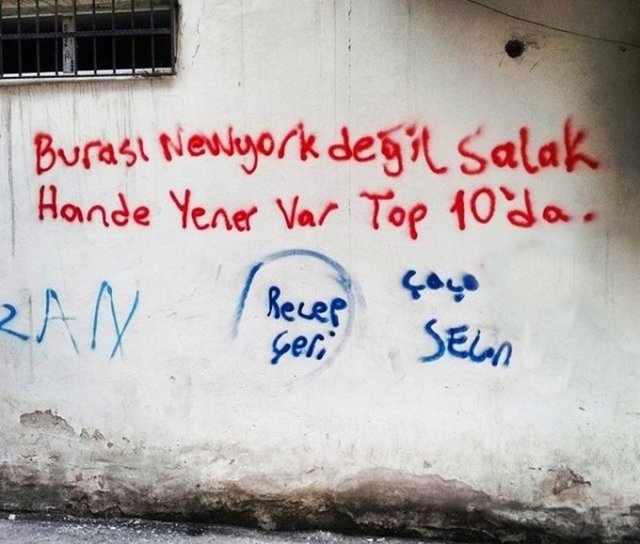 Burası Newyork değil Salak
Hande Yener Var Top 10'da.
ZAN
Recep
Geri
Çoço
SELın